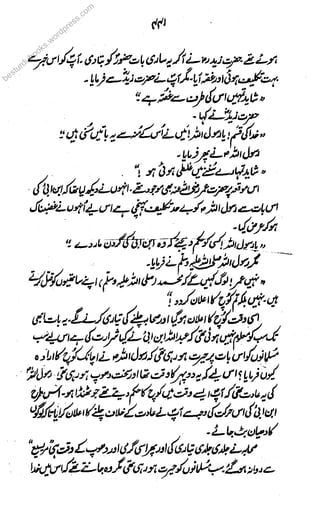 ۴۴۱
besturdubooks.wordpress.com
ہوئے تھے، حضرت زید رضی نے آ کر یہ ساری بات حضورؐ کو بتا دی۔ آپ کو اس خبر سے
بہت تکلیف ہوئی اور غصّہ آیا۔ مگر آپ نے حضرت زیدؓ سے فرمایا۔
"شاید تمہیں اس کی طرف سے غصّہ ہے"
حضرت زیدؓ نے کہا۔
"خدا کی قسم! یا رسول اللہؐ! میں نے اُس کے منہ سے یہ باتیں سُنی ہیں"
رسول اللہؐ نے پھر فرمایا۔
"شاید تمہارے سننے میں غلطی ہوئی ہو!"
اس موقعہ پر حضرت عمر رضی اللہ عنہ بھی موجود تھے۔ انہوں نے دیکھ لیا تھا کہ ابن ابی کی
اس بات سے رسول اللہؐ کو بے حد تکلیف پہنچی ہے اس لیے انہوں نے غضبناک
ہو کر عرض کیا۔
"یا رسول اللہ! کسی کو حکم دیجئے کہ وہ ابن ابی کی گردن مار دے"
مگر رسول اللہ صلی اللہ علیہ وسلم نے فرمایا۔
"نہیں عمر! لوگ کہیں گے کہ محمد (صلی اللہ علیہ وسلم) اپنے ساتھیوں کو قتل کرتے
ہیں۔ نہیں بلکہ تم کوچ کا اعلان کر دو!"
اسی وقت کوچ کا اعلان ہو گیا اور صحابہ چلنے کی تیاری کرنے لگے۔ یہ بات ابھی
تک سب کو معلوم نہیں ہوئی تھی کہ عبد اللہ ابن ابی نے کیا شرارت کی ہے اس لیے سب
مسلمانوں کو اس بات پر حیرت ہو رہی تھی کہ رسول اللہؐ نے اچانک کوچ کا ارادہ
کیوں فرمایا؟ اس لیے کہ یہ دوپہر کا وقت تھا اور سخت دھوپ ہو رہی تھی۔ رسول اللہؐ
کی یہ عادت تھی کہ آپ ایسے وقت میں کوچ کا حکم دیتے تھے جو ٹھنڈا ہو۔ اس طرح
ابن ابی کی اس حرکت کی وجہ سے آپ نے عادت کے خلاف چلنے کا اعلان کرایا تاکہ لوگوں
کا دھیان بٹ جائے۔
صحابہ نے جلدی جلدی تیاری کی اور پھر اسی گرمی اور دھوپ کے وقت ہی "مریسیع"
سے روانہ ہو گئے۔ سب مسلمانوں کو حیرت ہو رہی تھی مگر وہ جانتے تھے کہ اس میں خدا